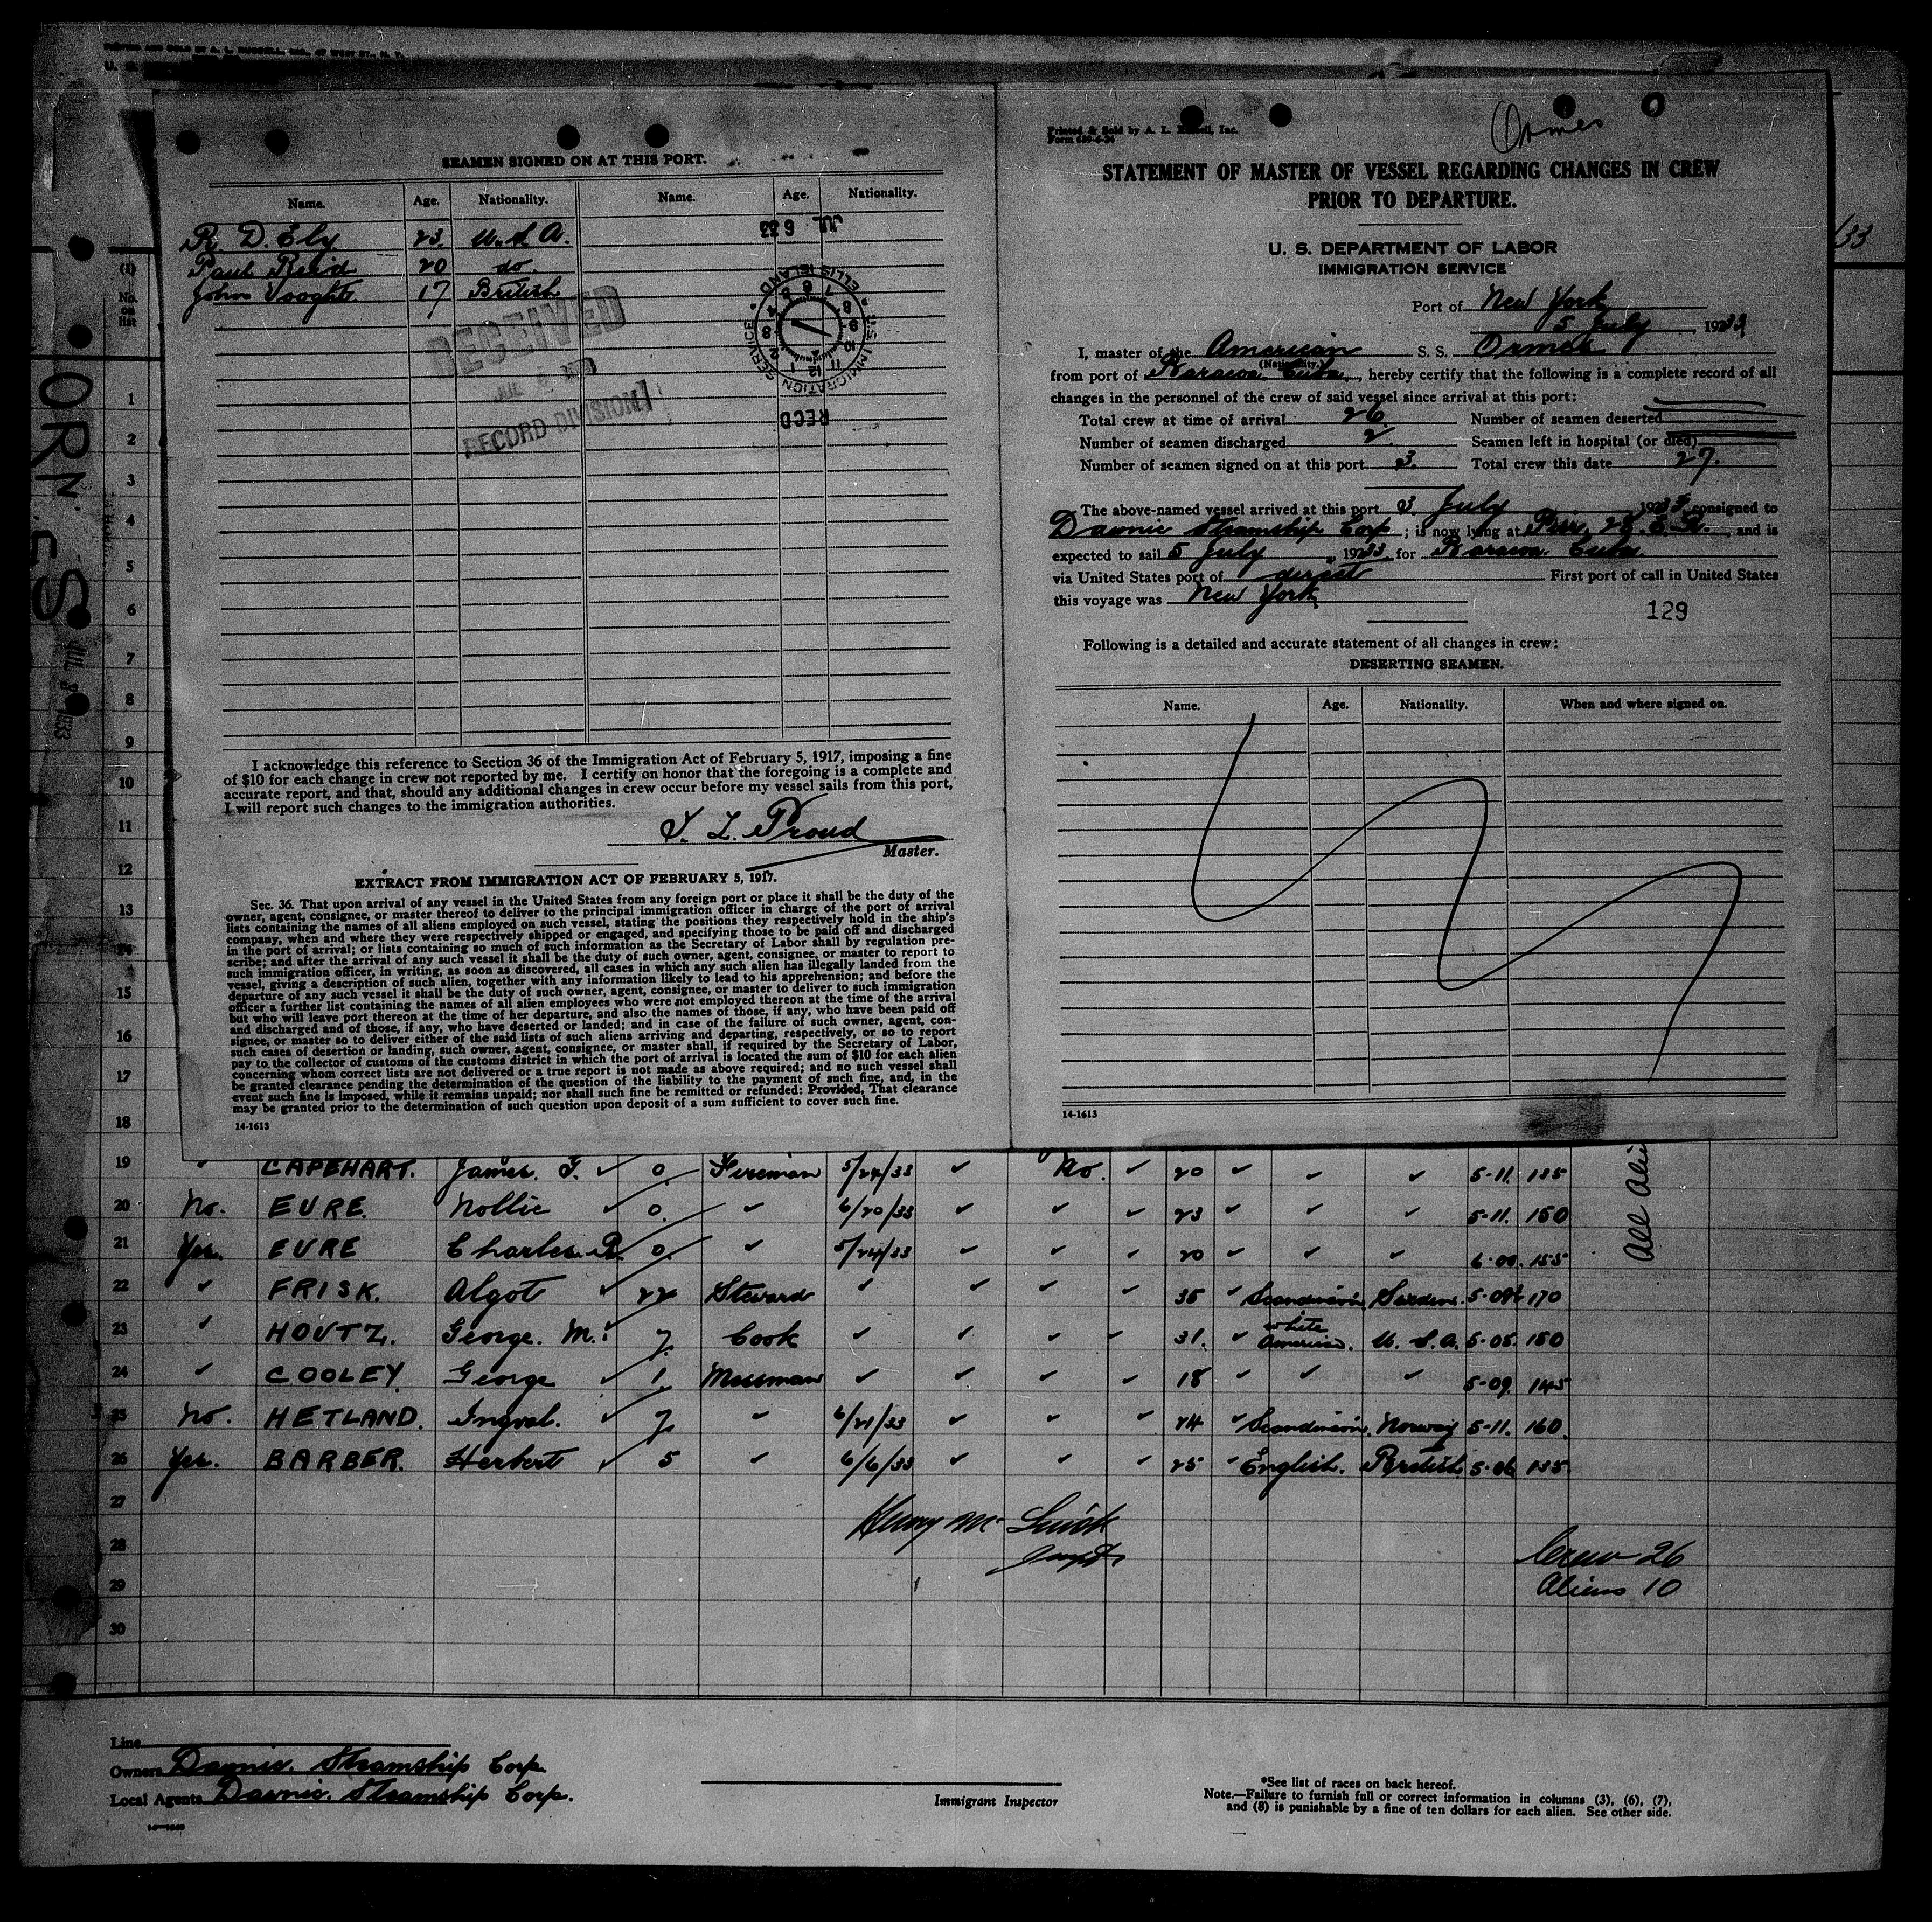 PRINTED AND SOLD BY A. L. RUSSELL, INC., 47 WEST ST., N. Y.
U. S.
SEAMEN SIGNED ON AT THIS PORT.
Name. Age. Nationality. Name. Age. Nationality.
R. D. Ely 23 U. S. A.
Paul Reid 20 do.
John Vooght 17 British
JUL 6 33
U.S. IMMIGRATION SERVICE ELLIS ISLAND
REC'D
RECEIVED
JUL
RECORD DIVISION
I acknowledge this reference to Section 36 of the Immigration Act of February 5, 1917, imposing a fine
of $10 for each change in crew not reported by me. I certify on honor that the foregoing is a complete and
accurate report, and that, should any additional changes in crew occur before my vessel sails from this port,
I will report such changes to the immigration authorities.
L. Proud
Master.
EXTRACT FROM IMMIGRATION ACT OF FEBRUARY 5, 1917.
Sec. 36. That upon arrival of any vessel in the United States from any foreign port or place it shall be the duty of the
owner, agent, consignee, or master thereof to deliver to the principal immigration officer in charge of the port of arrival
lists containing the names of all aliens employed on such vessel, stating the positions they respectively hold in the ship's
company, when and where they were respectively shipped or engaged, and specifying those to be paid off and discharged
in the port of arrival; or lists containing so much of such information as the Secretary of Labor shall by regulation pre-
scribe; and after the arrival of any such vessel it shall be the duty of such owner, agent, consignee, or master to report to
such immigration officer, in writing, as soon as discovered, all cases in which any such alien has illegally landed from the
vessel, giving a description of such alien, together with any information likely to lead to his apprehension; and before the
departure of any such vessel it shall be the duty of such owner, agent, consignee, or master to deliver to such immigration
officer a further list containing the names of all alien employees who were not employed thereon at the time of the arrival
but who will leave port thereon at the time of her departure, and also the names of those, if any, who have been paid off
and discharged and of those, if any, who have deserted or landed; and in case of the failure of such owner, agent, con-
signee, or master so to deliver either of the said lists of such aliens arriving and departing, respectively, or so to report
such cases of desertion or landing, such owner, agent, consignee, or master shall, if required by the Secretary of Labor,
pay to the collector of customs of the customs district in which the port of arrival is located the sum of $10 for each alien
concerning whom correct lists are not delivered or a true report is not made as above required; and no such vessel shall
be granted clearance pending the determination of the question of the liability to the payment of such fine, and, in the
event such fine is imposed, while it remains unpaid; nor shall such fine be remitted or refunded: Provided, That clearance
may be granted prior to the determination of such question upon deposit of a sum sufficient to cover such fine.
14-1613
Ormes
Printed & Sold by A. L. Russell, Inc.
Form 689-6-24
STATEMENT OF MASTER OF VESSEL REGARDING CHANGES IN CREW
PRIOR TO DEPARTURE.
U. S. DEPARTMENT OF LABOR
IMMIGRATION SERVICE
Port of New York
5 July, 1933
I, master of the American S. S. Ormes
(Nationality.)
from port of Baracoa Cuba, hereby certify that the following is a complete record of all
changes in the personnel of the crew of said vessel since arrival at this port:
Total crew at time of arrival 26 Number of seamen deserted
Number of seamen discharged 2 Seamen left in hospital (or died)
Number of seamen signed on at this port 3. Total crew this date 27.
The above-named vessel arrived at this port 3 July 1933, consigned to
Davnie Steamship Corp; is now lying at Pier 28. E. R., and is
expected to sail 5 July, 1933, for Baracoa Cuba
via United States port of direct First port of call in United States
this voyage was New York
129
Following is a detailed and accurate statement of all changes in crew:
DESERTING SEAMEN.
Name. Age. Nationality. When and where signed on.
14-1613
33
ORNES
JUL 3 1933
(1)
No. on list
1
2
3
4
5
6
7
8
9
10
11
12
13
14
15
16
17
18
19 ✓ CAPEHART. James. T. ✓ 0 Fireman 5/24/33 ✓ No. ✓ 20 ✓ ✓ ✓ 5-11. 135
20 No. EURE. Nollie ✓ 0. ✓ 6/20/33 ✓ ✓ ✓ 23 ✓ ✓ ✓ 5-11. 150
21 Yes. EURE Charles. R. 0. ✓ 5/24/33 ✓ ✓ ✓ 20 ✓ ✓ ✓ 6-00. 155
22 ✓ FRISK. Algot ✓ 22 Steward ✓ ✓ ✓ ✓ 35 ✓ Scandinavian Sweden. 5-09½ 170
23 ✓ HOUTZ. George. M. 7. Cook ✓ ✓ ✓ ✓ 31. ✓ white American. U. S. A. 5-05. 150
24 ✓ COOLEY. George ✓ 1. Messman ✓ ✓ ✓ ✓ 18 ✓ ✓ ✓ 5-09. 145
25 No. HETLAND. Ingval. ✓ 7. ✓ 6/21/33 ✓ ✓ ✓ 24 ✓ Scandinavian. Norway 5-11. 160.
26 Yes. BARBER. Herbert ✓ 5 ✓ 6/6/33 ✓ ✓ ✓ 25 ✓ English. British 5-06 135.
27
28
29
30
All Ali
Henry Mc
Crew 26
Aliens 10
Line
Owners Davnie. Steamship Corp.
Local Agents Davnie. Steamship Corp.
Immigrant Inspector
*See list of races on back hereof.
Note.—Failure to furnish full or correct information in columns (3), (6), (7),
and (8) is punishable by a fine of ten dollars for each alien. See other side.